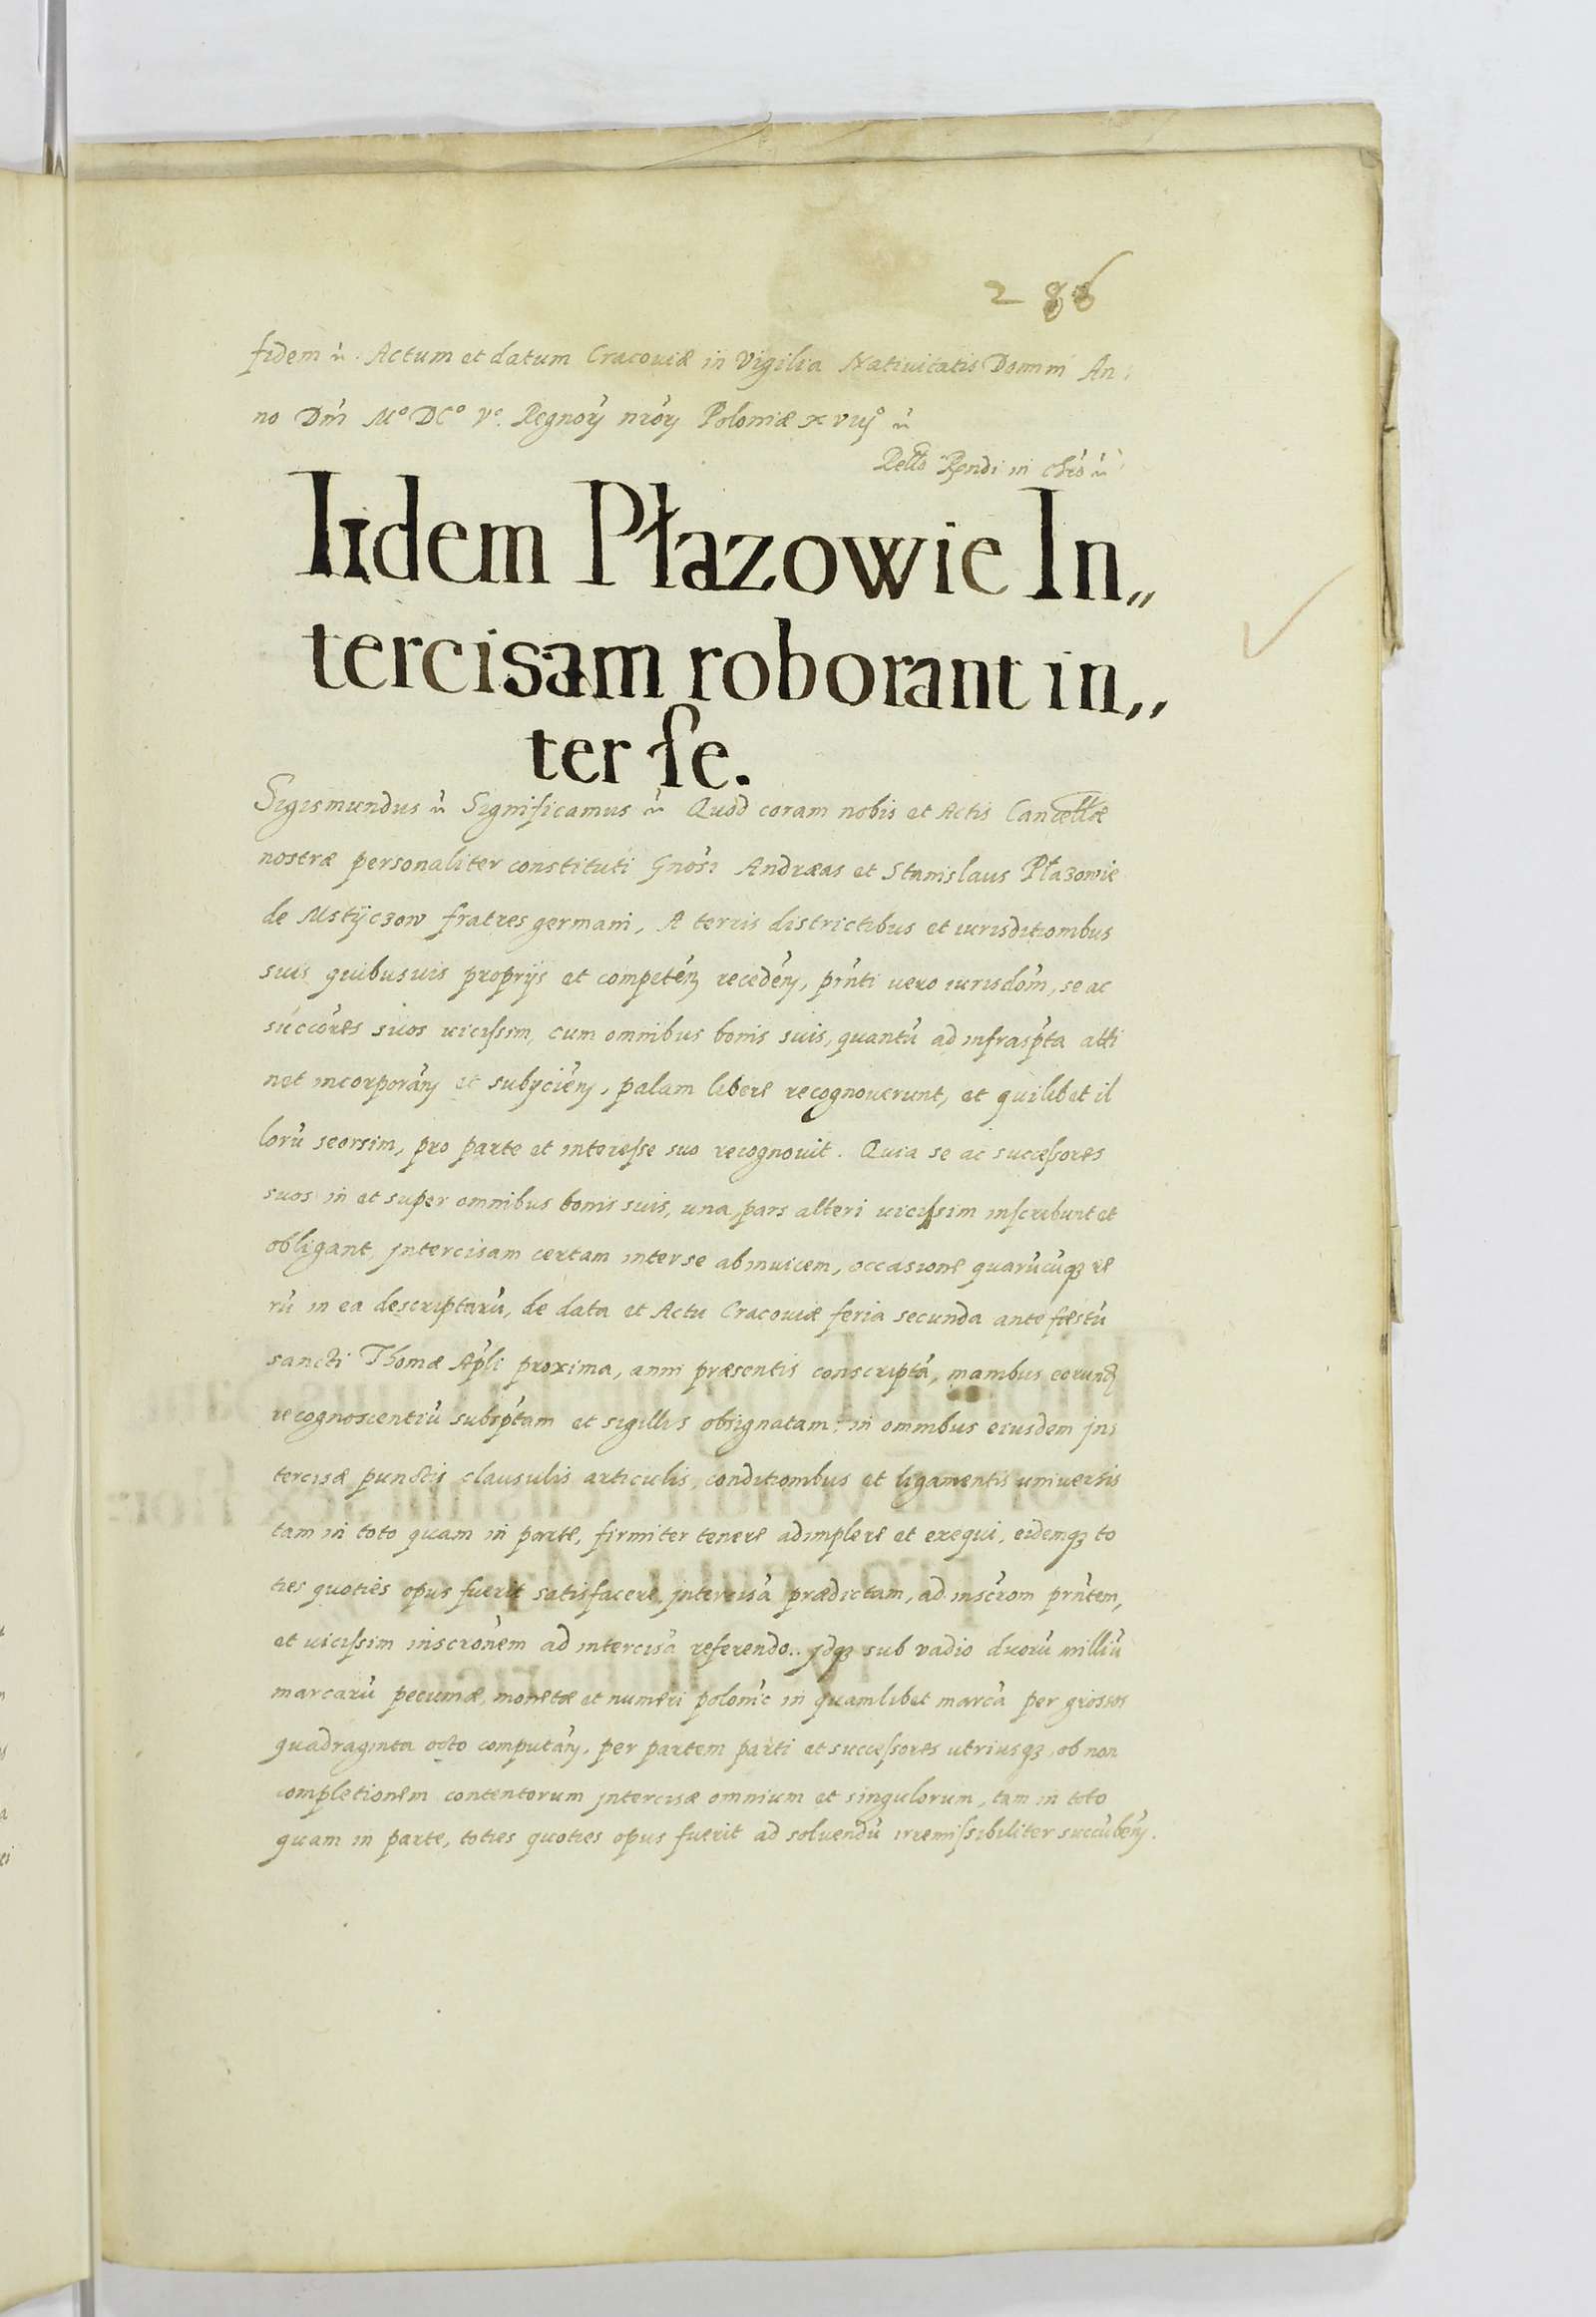 286
fidem ñ. Actum et datum Cracouiæ in Vigilia Natiuitatis Domini An
no Dñi Mº DCº Vº. Regnorũ nrõrũ Poloniæ xviijº ñ
Rello Rendi in chro ñ
Iidem Płazowie In„
tercisam roborant in„
ter ſe.
Sigismundus ñ Significamus ñ Quod coram nobis et Actis Cancellæ
nostræ personaliter constituti Gnosi Andræas et Stanislaus Płazowie
de Mstÿczow fratres germani, A terris districtibus et iurisditionibus
suis quibusuis proprijs et competeñ recedeñ, prñti uero iurisdom̃, se ac
succores suos uiciſsim, cum omnibus bonis suis, quantũ ad infraspta atti
net incorporañ et subijcieñ, palam libere recognouerunt, et quilibet il
lorũ seorsim, pro parte et intereſse suo recognouit. Quia se ac succeſsores
suos in et super omnibus bonis suis, una pars alteri uiciſsim inſcribunt et
obligant, jntercisam certam inter se abinuicem, occasione quarũcũqꝫ re
rũ in ea descriptarũ, de data et Actu Cracouiæ feria secunda ante fæstũ
sancti Thomæ Apli proxima, anni præsentis conscriptã, manibus eorundꝫ
recognoscentiũ subsptam et sigillis obsignatam: in omnibus eiusdem jn
tercisæ punctis clausulis articulis, conditionibus et ligamentis uniuersis
tam in toto quam in parte, firmiter tenere adimplere et exequi, eidemqꝫ to
ties quoties opus fuerit satisfacere jntercisã prædictam, ad inscrom prñtem,
et uiciſsim inscronem ad intercisã referendo.. jdqꝫ sub vadio duorũ milliũ
marcarũ pecuniæ, monetæ et numeri polonic in quamlibet marcã per grossos
quadraginta octo computañ, per partem parti et succeſsores utriusqꝫ, ob non
completionem contentorum jntercisæ omnium et singulorum, tam in toto
quam in parte, toties quoties opus fuerit ad soluendũ irremiſsibiliter succubeñ.